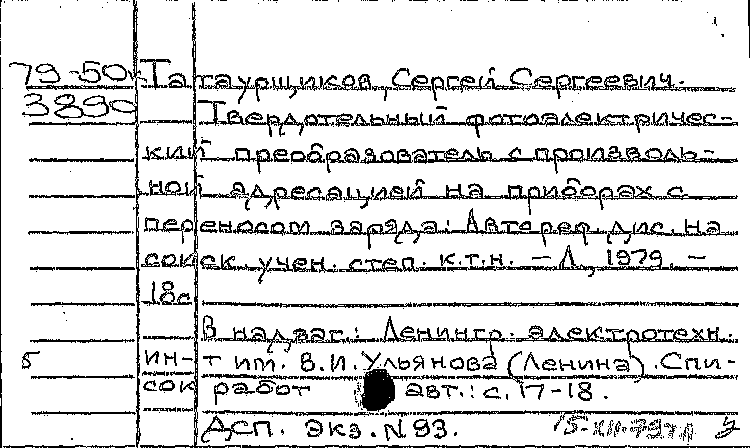 79-50
Татаурщиков, Сергей Сергеевич.
3890
Твердотельный фотоэлектричес-
кий преобразователь с произволь-
ной адресацией на приборах с
переносом заряда: Автореф. дис. на
соиск. учен. степ. к.т.н. – Л., 1979. –
18с.
В надзаг.: Ленингр. электротехн.
5 ин-т им. В.И. Ульянова (Ленина). Спи-
сок работ авт.: с. 17-18.
ДСП. Экз. N 93. 15-XII-79